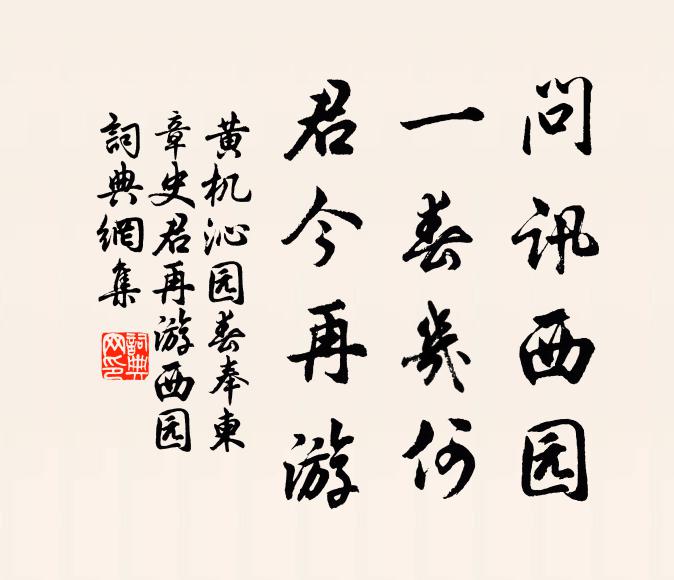 问讯西园
一春几何
君今再游
黄机沁园春奉東
章史君再游西园
詞典網集
詞典网印